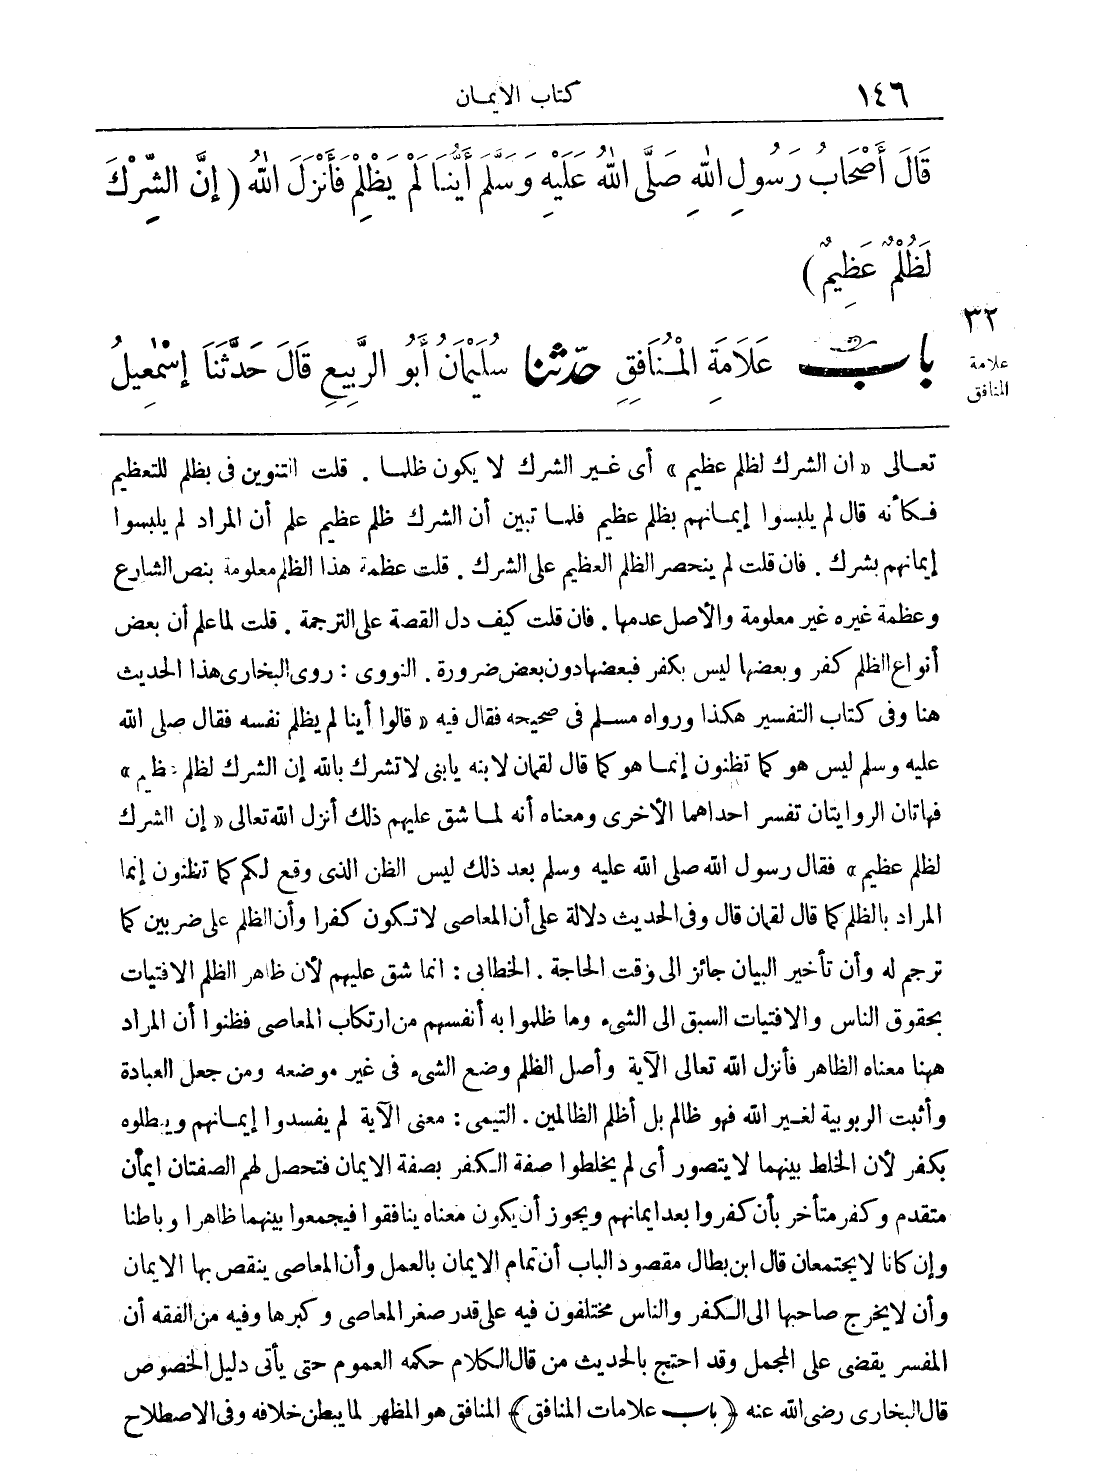 ١٤٦ كتاب الايمان
قَالَ أَصْحَابُ رَسُولِ اللهِ صَلَّى اللهُ عَلَيْهِ وَسَلَّمَ أَيُّنَا لَمْ يَظْلِمْ فَأَنْزَلَ اللهُ ( إِنَّ الشِّرْكَ
لَظُلْمٌ عَظِيمٌ )
٣٢
علامة
المنافق
باب عَلَامَةِ الْمُنَافِقِ حدّثنا سُلَيْمَانُ أَبُو الرَّبِيعِ قَالَ حَدَّثَنَا إِسْمٰعِيلُ
تعالى «ان الشرك لظلم عظيم» أى غير الشرك لا يكون ظلما . قلت التنوين فى بظلم للتعظيم
فكأنه قال لم يلبسوا إيمانهم بظلم عظيم فلما تبين أن الشرك ظلم عظيم علم أن المراد لم يلبسوا
إيمانهم بشرك . فان قلت لم ينحصر الظلم العظيم على الشرك . قلت عظمة هذا الظلم معلومة بنص الشارع
وعظمة غيره غير معلومة والأصل عدمها . فان قلت كيف دل القصة على الترجمة . قلت لما علم أن بعض
أنواع الظلم كفر وبعضها ليس بكفر فبعضها دون بعض ضرورة . النووى : روى البخارى هذا الحديث
هنا وفى كتاب التفسير هكذا ورواه مسلم فى صحيحه فقال فيه « قالوا أينا لم يظلم نفسه فقال صلى الله
عليه وسلم ليس هو كما تظنون إنما هو كما قال لقمان لابنه يابنى لا تشرك بالله إن الشرك لظلم عظيم »
فهاتان الروايتان تفسر احداهما الأخرى ومعناه أنه لما شق عليهم ذلك أنزل الله تعالى « إن الشرك
لظلم عظيم » فقال رسول الله صلى الله عليه وسلم بعد ذلك ليس الظن الذى وقع لكم كما تظنون إنما
المراد بالظلم كما قال لقمان قال وفى الحديث دلالة على أن المعاصى لا تكون كفرا وأن الظلم على ضربين كما
ترجم له وأن تأخير البيان جائز الى وقت الحاجة . الخطابى : انما شق عليهم لأن ظاهر الظلم الافتيات
بحقوق الناس والافتيات السبق الى الشىء وما ظلموا به أنفسهم من ارتكاب المعاصى فظنوا أن المراد
ههنا معناه الظاهر فأنزل الله تعالى الآية وأصل الظلم وضع الشىء فى غير موضعه ومن جعل العبادة
وأثبت الربوبية لغير الله فهو ظالم بل أظلم الظالمين . التيمى : معنى الآية لم يفسدوا إيمانهم ويبطلوه
بكفر لأن الخلط بينهما لا يتصور أى لم يخلطوا صفة الكفر بصفة الايمان فتحصل لهم الصفتان ايمان
متقدم وكفر متأخر بأن كفروا بعد ايمانهم ويجوز أن يكون معناه ينافقوا فيجمعوا بينهما ظاهرا وباطنا
وإن كانا لا يجتمعان قال ابن بطال مقصود الباب أن تمام الايمان بالعمل وأن المعاصى ينقص بها الايمان
وأن لا يخرج صاحبها الى الكفر والناس مختلفون فيه على قدر صغر المعاصى وكبرها وفيه من الفقه أن
المفسر يقضى على المجمل وقد احتج بالحديث من قال الكلام حكمه العموم حتى يأتى دليل الخصوص
قال البخارى رضى الله عنه ﴿ باب علامات المنافق ﴾ المنافق هو المظهر لما يبطن خلافه وفى الاصطلاح